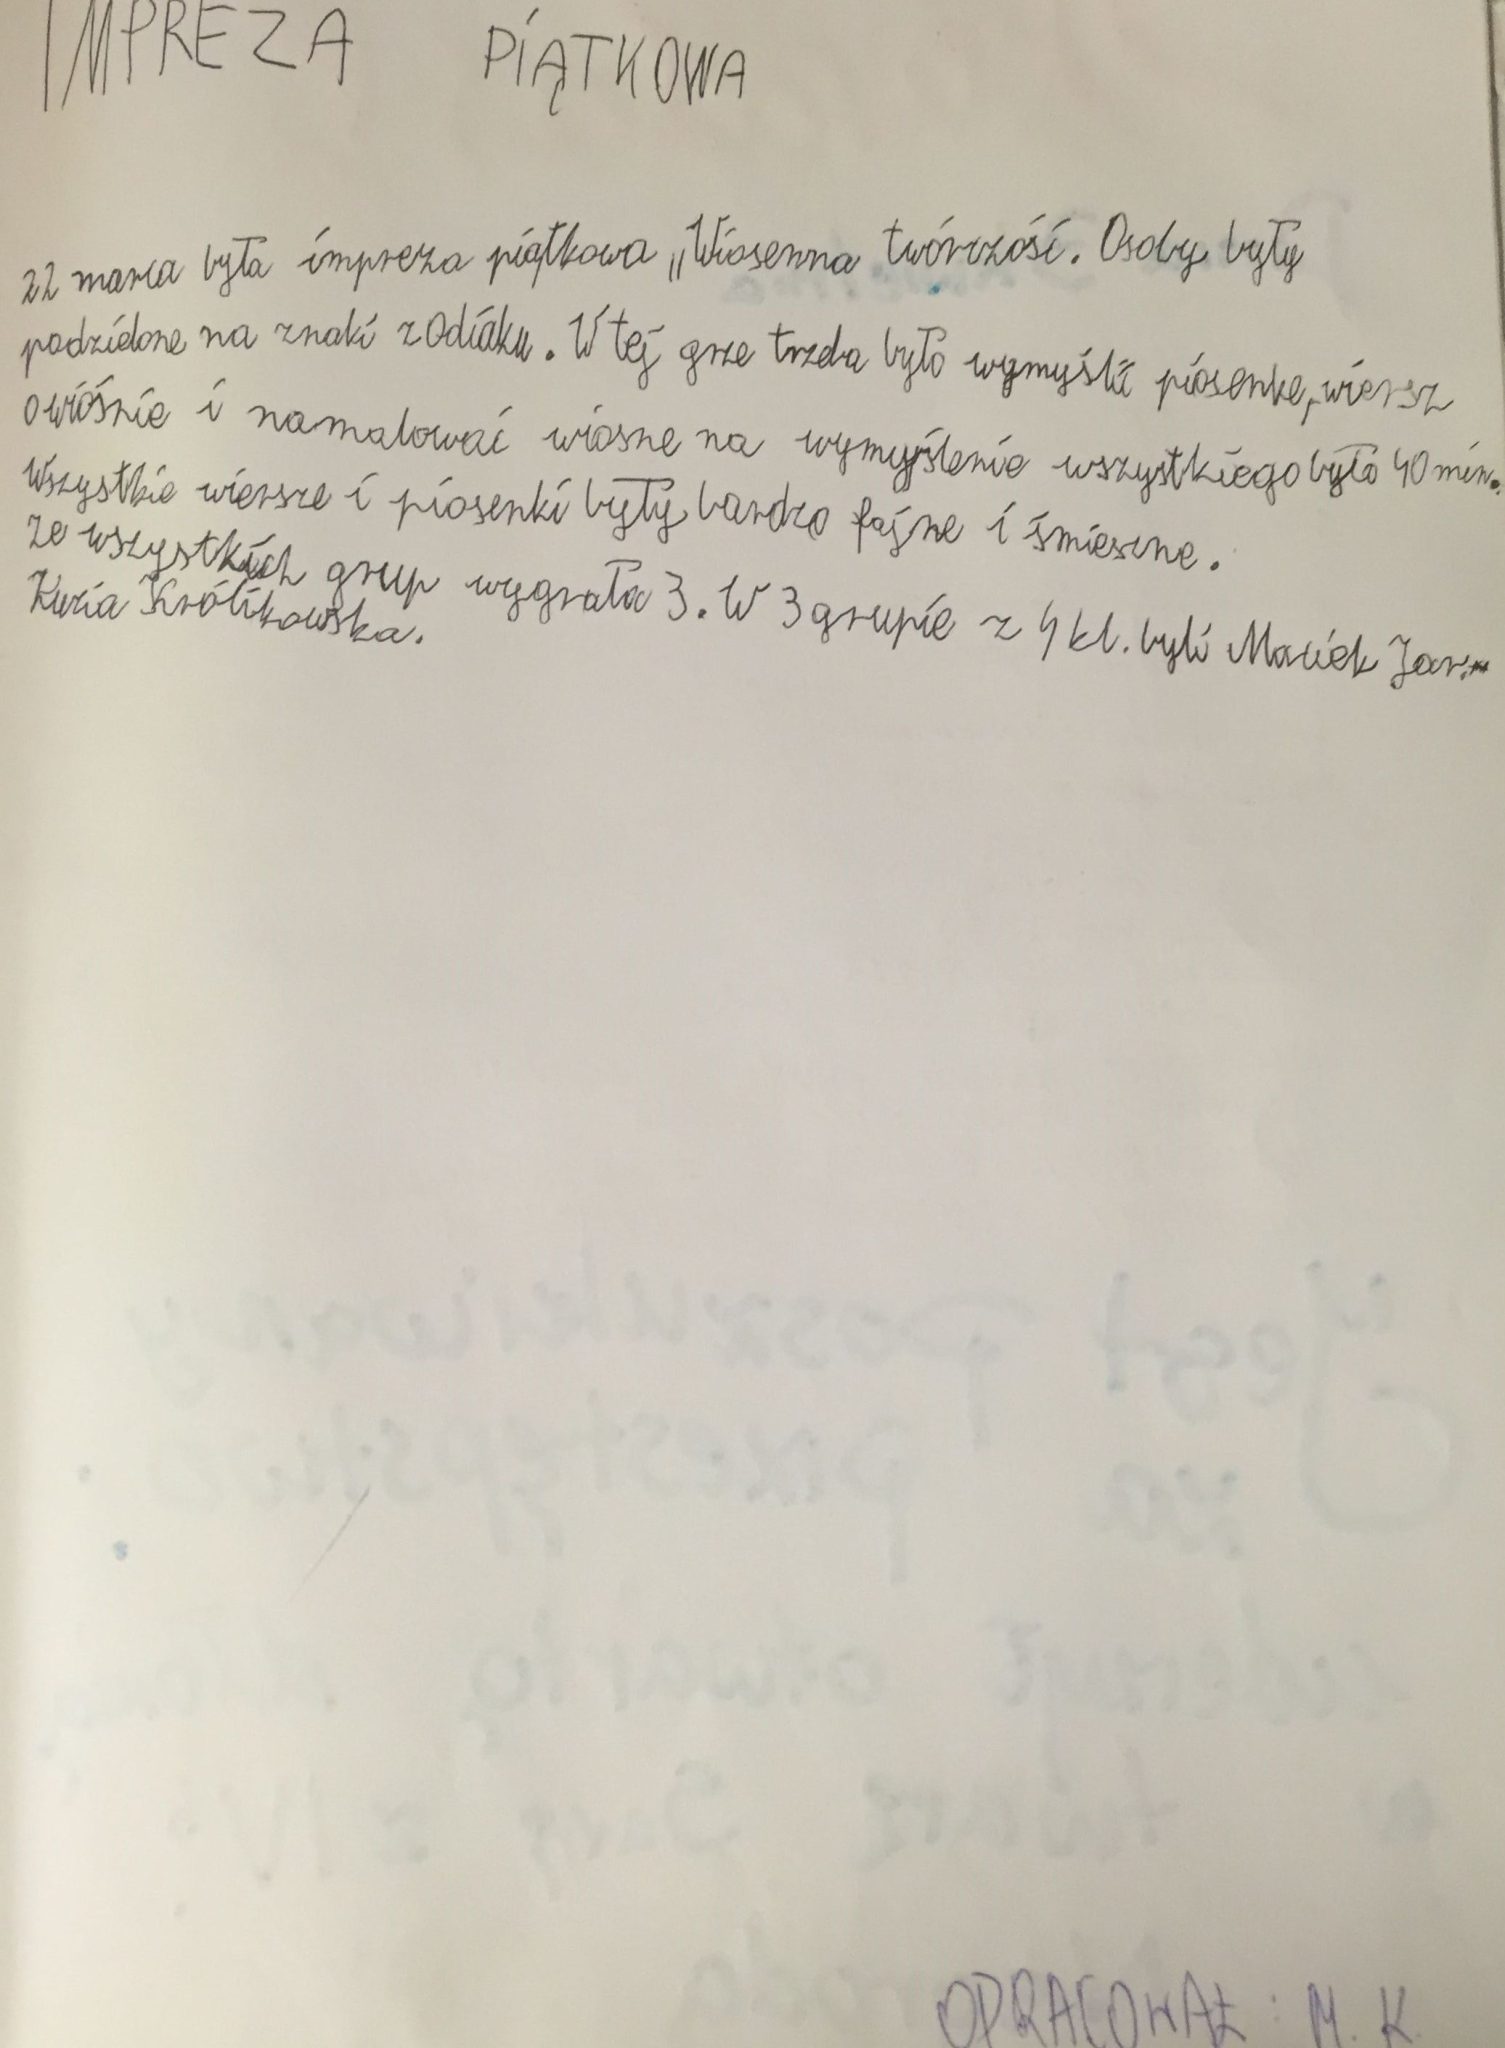 IMPREZA PIĄTKOWA
22 marca była impreza piątkowa „Wiosenna twórczość. Osoby były
podzielone na znaki zodiaku. W tej grze trzeba było wymyślić piosenke, wiersz
o wiośnie i namalować wiosne na wymyślenie wszystkiego było 40 min.
Wszystkie wiersze i piosenki były bardzo fajne i śmieszne.
Ze wszystkich grup wygrała 3. W 3 grupie z 4 kl. byli Maciek Jar.
Kuzia Królikowska.
OPRACOWAŁ: M. K.